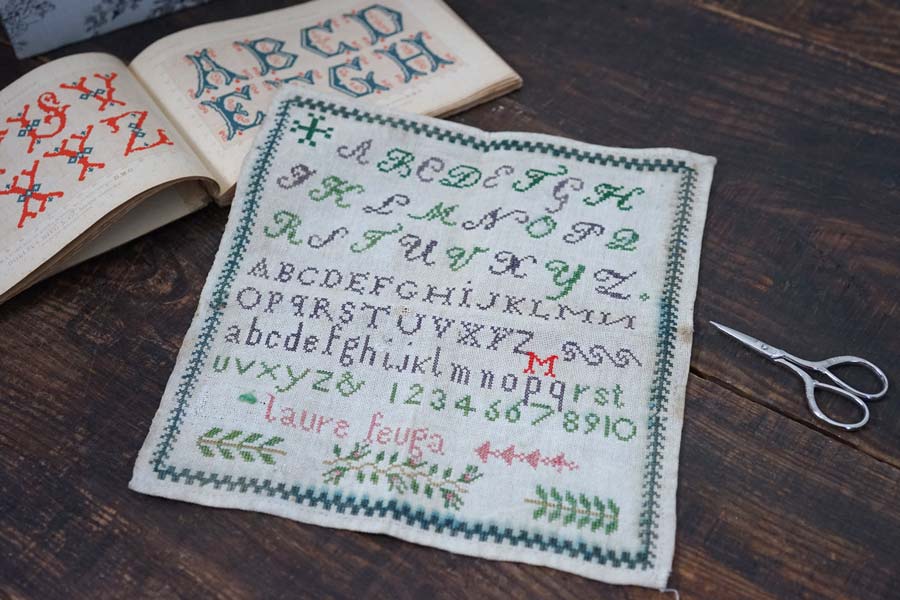 ABCD
EFGH
ABCDEFGH
IKLMNOPQ
RSTUVXYZ
ABCDEFGHİJKLMN
OPqRSTUVXYZ
M
abcdefghijklmnopqrst
uvxyz& 12345678910
laure feuga